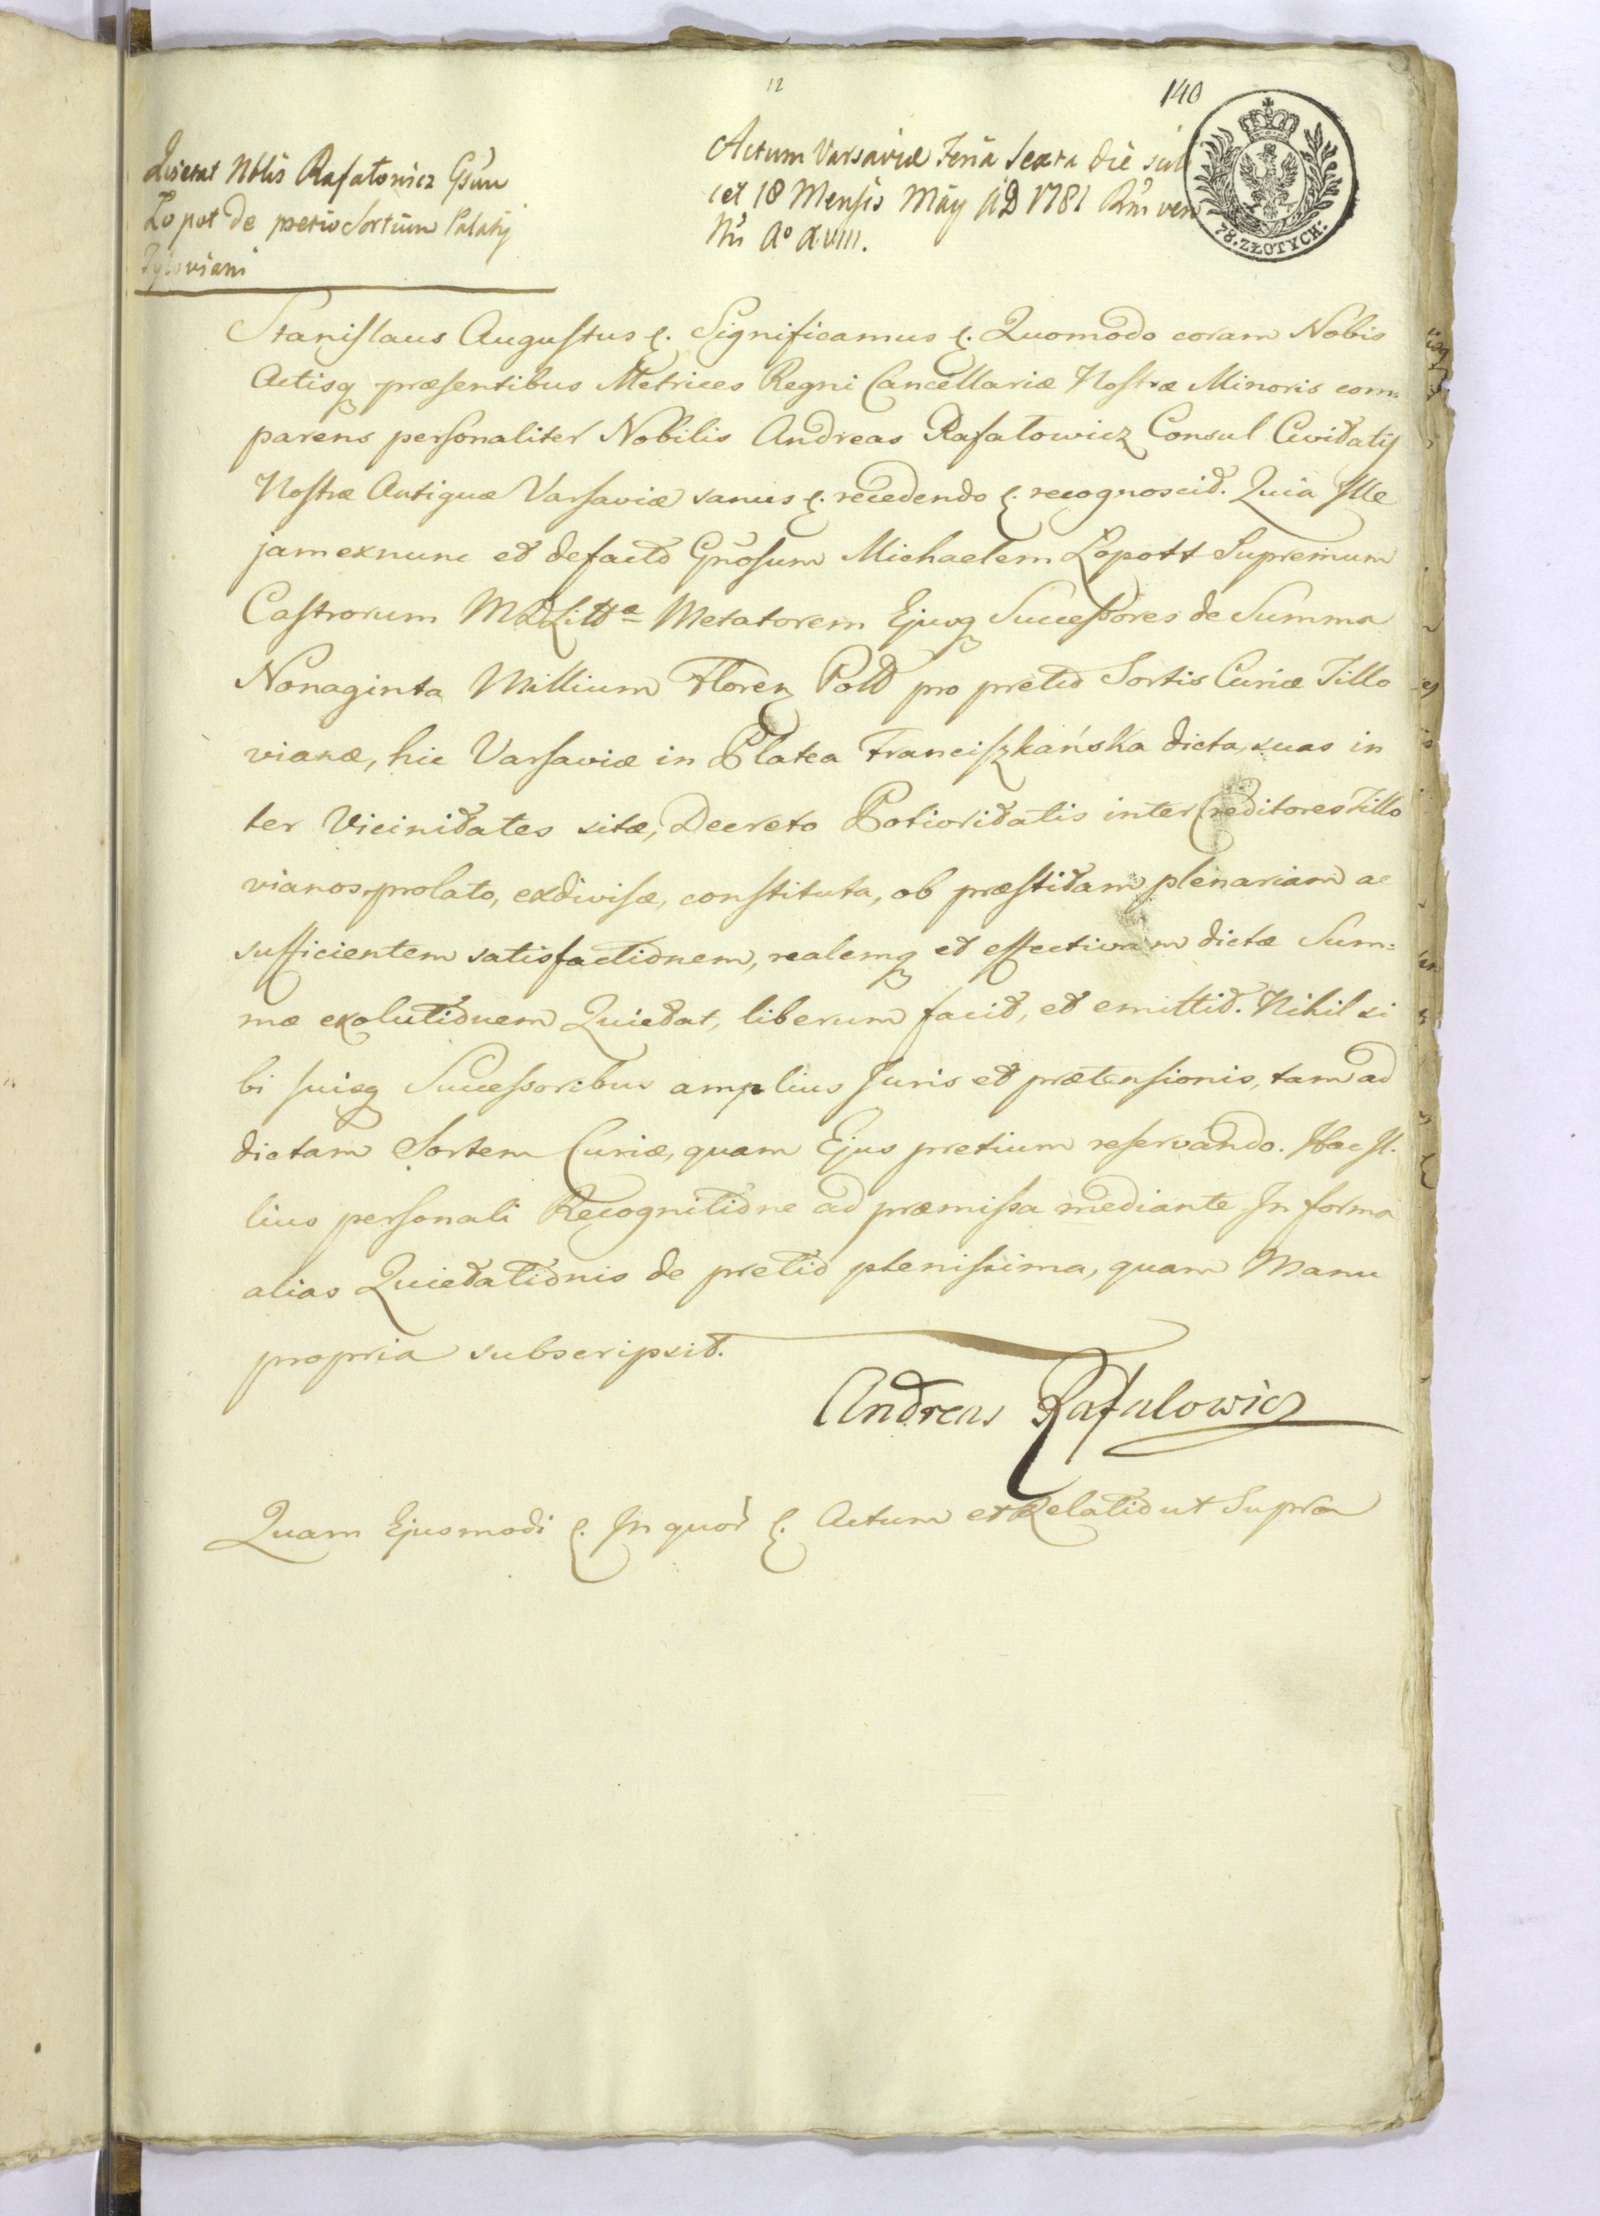 12
140
Quietat Nblis Rafałowicz Gsum
Łopot de pretio Sortium Palatij
Tylloviani
Actum Varsaviæ Feria Sexta die scil
icet 18 Mensis May AD 1781 Rni vero
Nri Ao XVIII.
78. ZŁOTYCH.
Stanislaus Augustus &. Significamus &. Quomodo coram Nobis
Actisq præsentibus Metrices Regni Cancellariæ Nostræ Minoris com:
parens personaliter Nobilis Andreas Rafałowicz Consul Civitatis
Nostræ Antiquæ Varsaviæ sanus &. recedendo &. recognoscit. Quia Ille
jam exnunc et defacto Gnosum Michaelem Łopott Supremum
Castrorum MDLittæ Metatorem Ejusq Successores de Summa
Nonaginta Millium Floren Poll pro pretio Sortis Curiæ Tillo
vianæ, hic Varsaviæ in Platea Franciszkańska dicta, suas in
ter Vicinitates sitæ, Decreto Potioritatis inter Creditores Tillo
vianos prolato, exdivisæ, constituta, ob præstitam plenariam ac
sufficientem satisfactionem, realemq et effectivam dictæ Sum:
mæ exolutionem Quietat, liberum facit, et emittit. Nihil si
bi suisq Successoribus amplius Juris et prætensionis, tam ad
dictam Sortem Curiæ, quam Ejus pretium reservando. Hac Il.
lius personali Recognitione ad præmissa mediante In forma
alias Quietationis de pretio plenissima, quam Manu
propria subscripsit.
Andreas Rafalowicz
Quam Ejusmodi &. In quor &. Actum et Relatio ut Supra